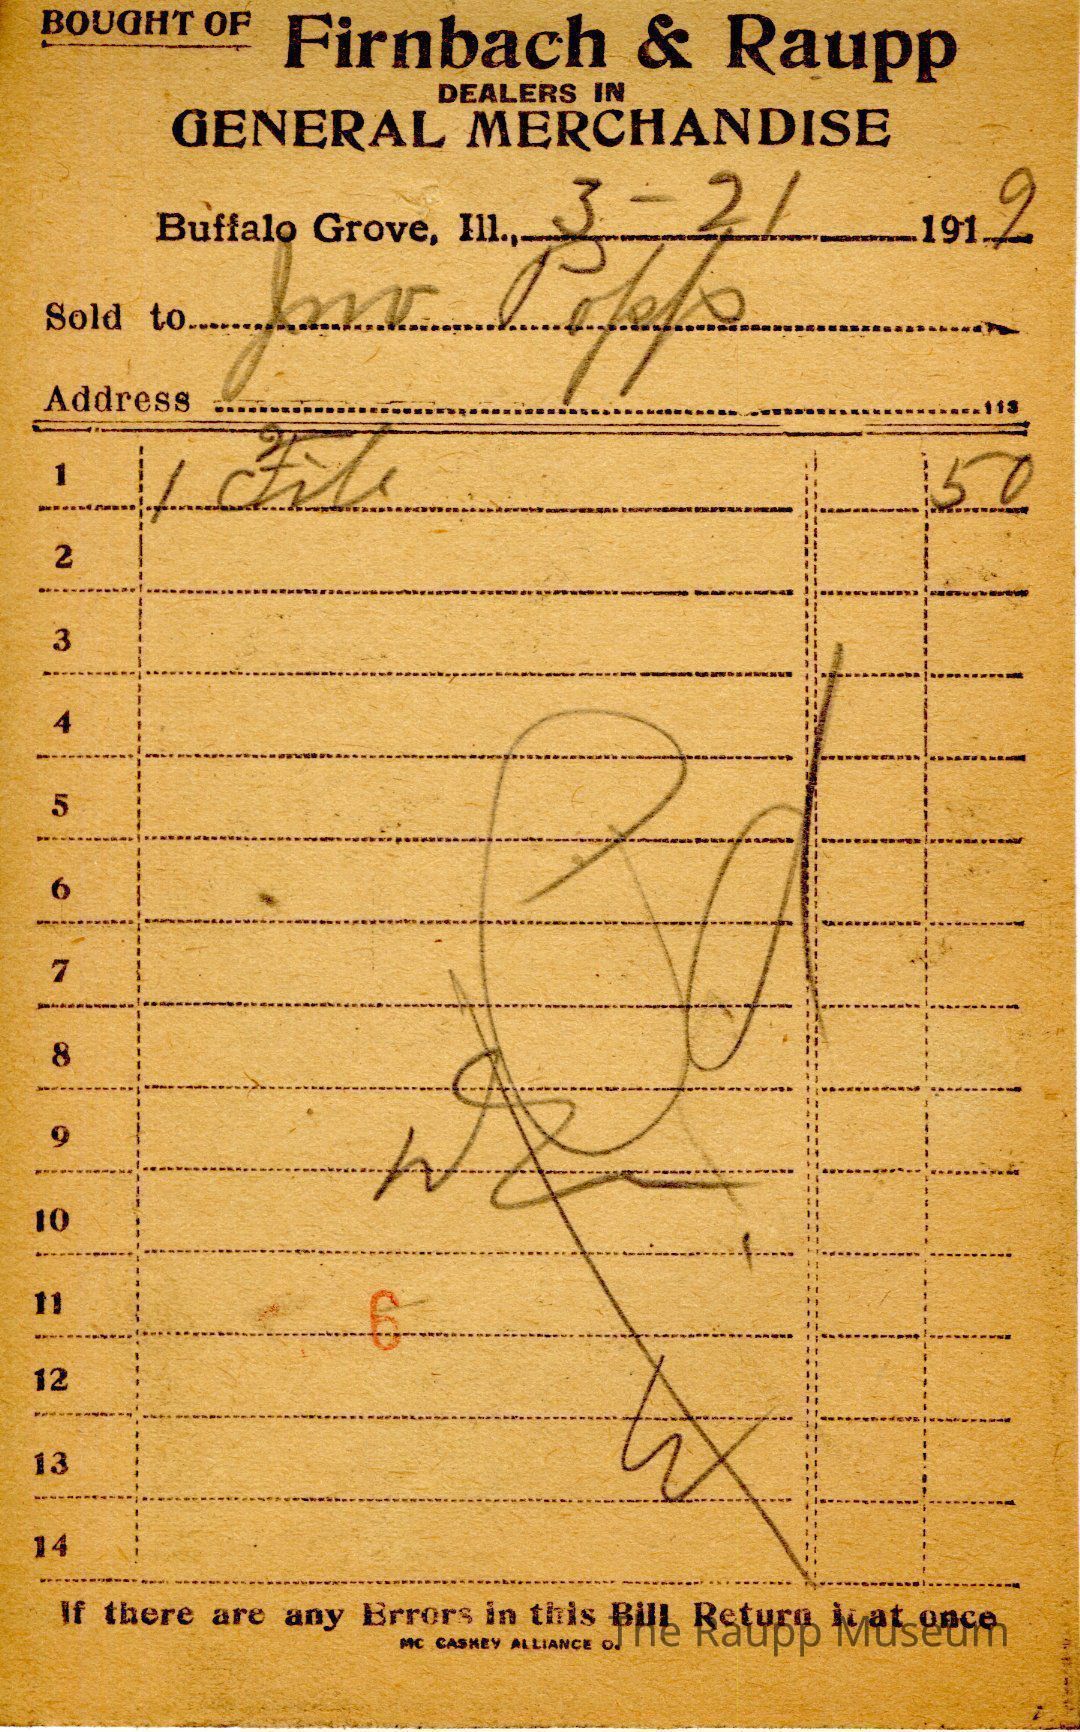 BOUGHT OF Firnbach & Raupp
DEALERS IN
GENERAL MERCHANDISE
Buffalo Grove, Ill., 3-21 1919
Sold to Jno Popp
Address 113
1 1 File 50
2
3
4
5
6
7
8
9
10
11 6
12
13
14
If there are any Errors in this Bill Return it at once
MC CASKEY ALLIANCE O.
The Raupp Museum